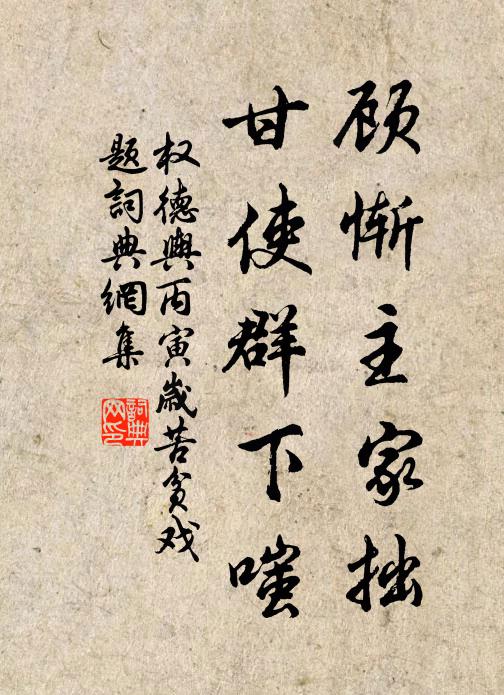 顾惭主家拙
甘使群下嗤
权德舆丙寅岁苦贫戏
题詞典網集
詞典网印